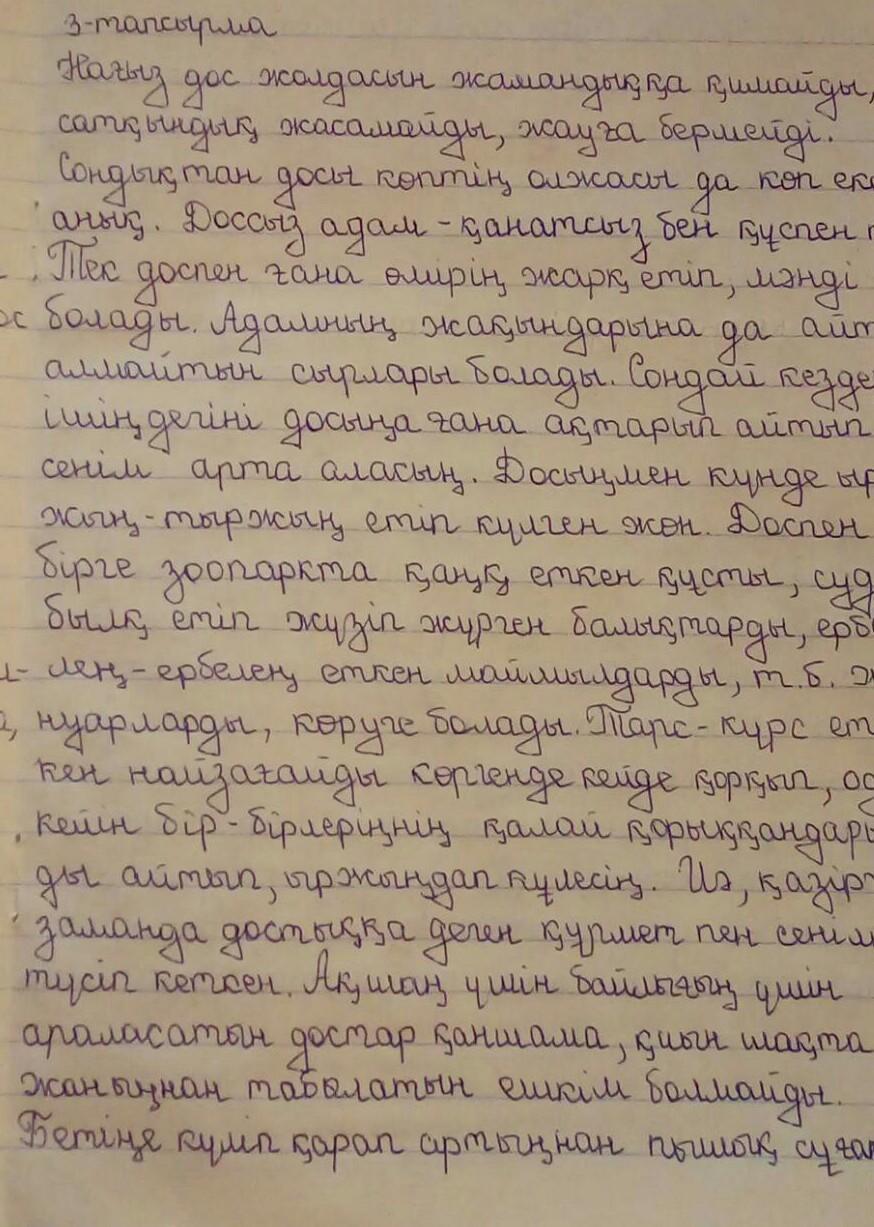 3-тапсырма
Нағыз дос жолдасын жамандыққа қимайды,
сатқындық жасамайды, жауға бермейді.
Сондықтан досы көптің олжасы да көп ек
анық. Доссыз адам - қанатсыз бен құспен
Тек доспен ғана өмірің жарқ етіп, мәнді
болады. Адамның жақындарына да айт
алмайтын сырлары болады. Сондай кезде
ішіңдегіні досыңа ғана ақтарып айтып
сенім арта аласың. Досыңмен күнде ыр
жың-тыржың етіп күлген жөн. Доспен
бірге зоопаркта қаңқ еткен құсты, суд
былқ етіп жүзіп жүрген балықтарды, ерб
лең-ербелең еткен маймылдарды, т.б. ж
нуарларды, көруге болады. Тарс-күрс ет
кен найзағайды көргенде кейде қорқып, ос
кейін бір-бірлеріңнің қалай қорыққандары
ды айтып, ыржыңдап күлесің. Иә, қазір
заманда достыққа деген құрмет пен сенім
түсіп кеткен. Ақшаң үшін байлығың үшін
араласатын достар қаншама, қиын шақта
жаныңнан табылатын ешкім болмайды.
Бетіңе күліп қарап артыңнан пышақ сұға